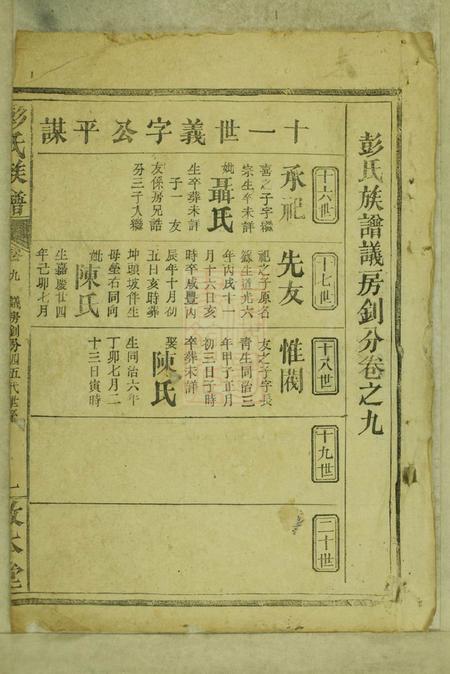 彭氏族譜議房釗分卷之九
十一世義字公平謀
十六世
承祀
喜之子字繼
宗生卒葬未詳
妣聶氏
生卒葬未詳
子一友
友係房兄誥
分三子入繼
十七世
先友
祀之子原名
生道光六
年丙戌十一
月十六日亥
時卒咸豐丙
辰年十月初
五日亥時葬
坤頭坡伴生
母塋右同向
妣陳氏
生嘉慶廿四
年己卯七月
十八世
惟閣
友之子字長
青生同治三
年甲子正月
初三日子時
卒葬未詳
娶陳氏
生同治六年
丁卯七月二
十三日寅時
十九世
二十世
彭氏族譜
卷九
議房釗分四五代世系
敦本堂